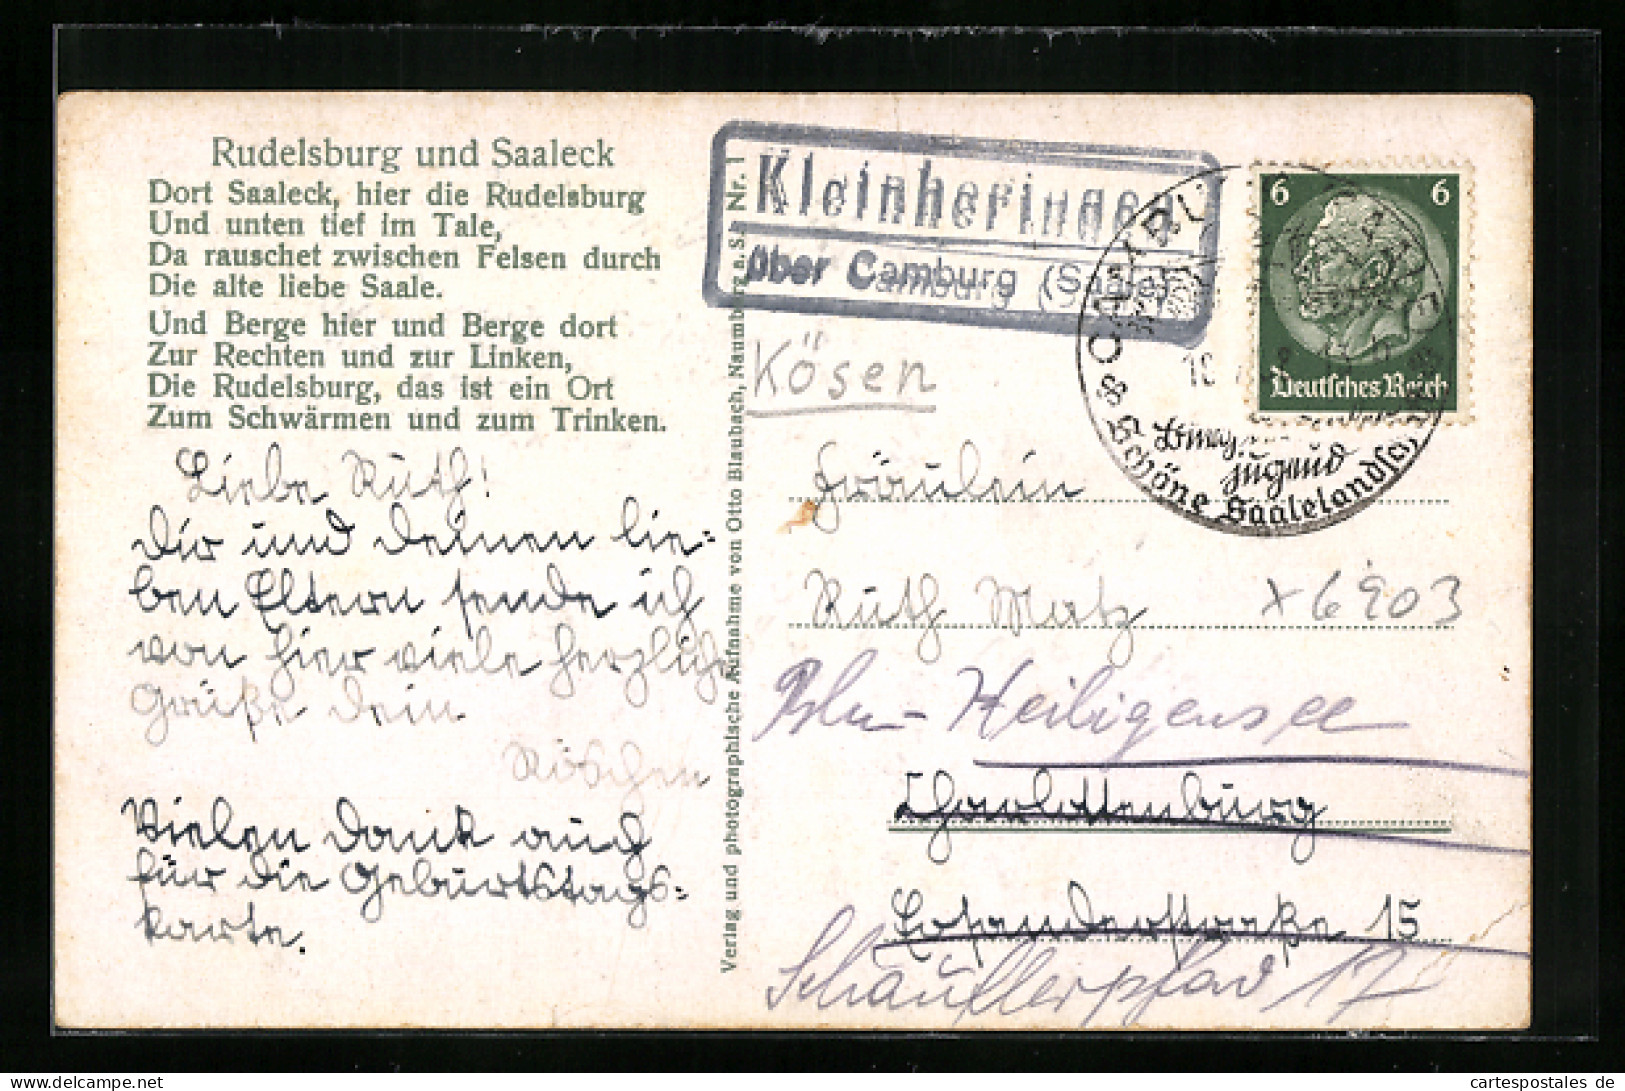 Rudelsburg und Saaleck
Dort Saaleck, hier die Rudelsburg
Und unten tief im Tale,
Da rauschet zwischen Felsen durch
Die alte liebe Saale.
Und Berge hier und Berge dort
Zur Rechten und zur Linken,
Die Rudelsburg, das ist ein Ort
Zum Schwärmen und zum Trinken.
Liebe Ruth!
Dir und deinen lie=
ben Eltern sende ich
von hier viele herzliche
Grüße dein
Röschen
Vielen Dank auch
für die Geburtstags=
karte.
Verlag und photographische Aufnahme von Otto Blaubach, Naumburg a. S. Nr. 1
Kleinheringen
über Camburg (Saale)
Kösen
CAMBURG
Schöne Saalelandsch
Jugend
6 6
Deutsches Reich
Fräulein
Ruth Matz
x6903
Bln-Heiligensee
Charlottenburg
Eosanderstraße 15
Schäuflerpfad 17
cartespostales de